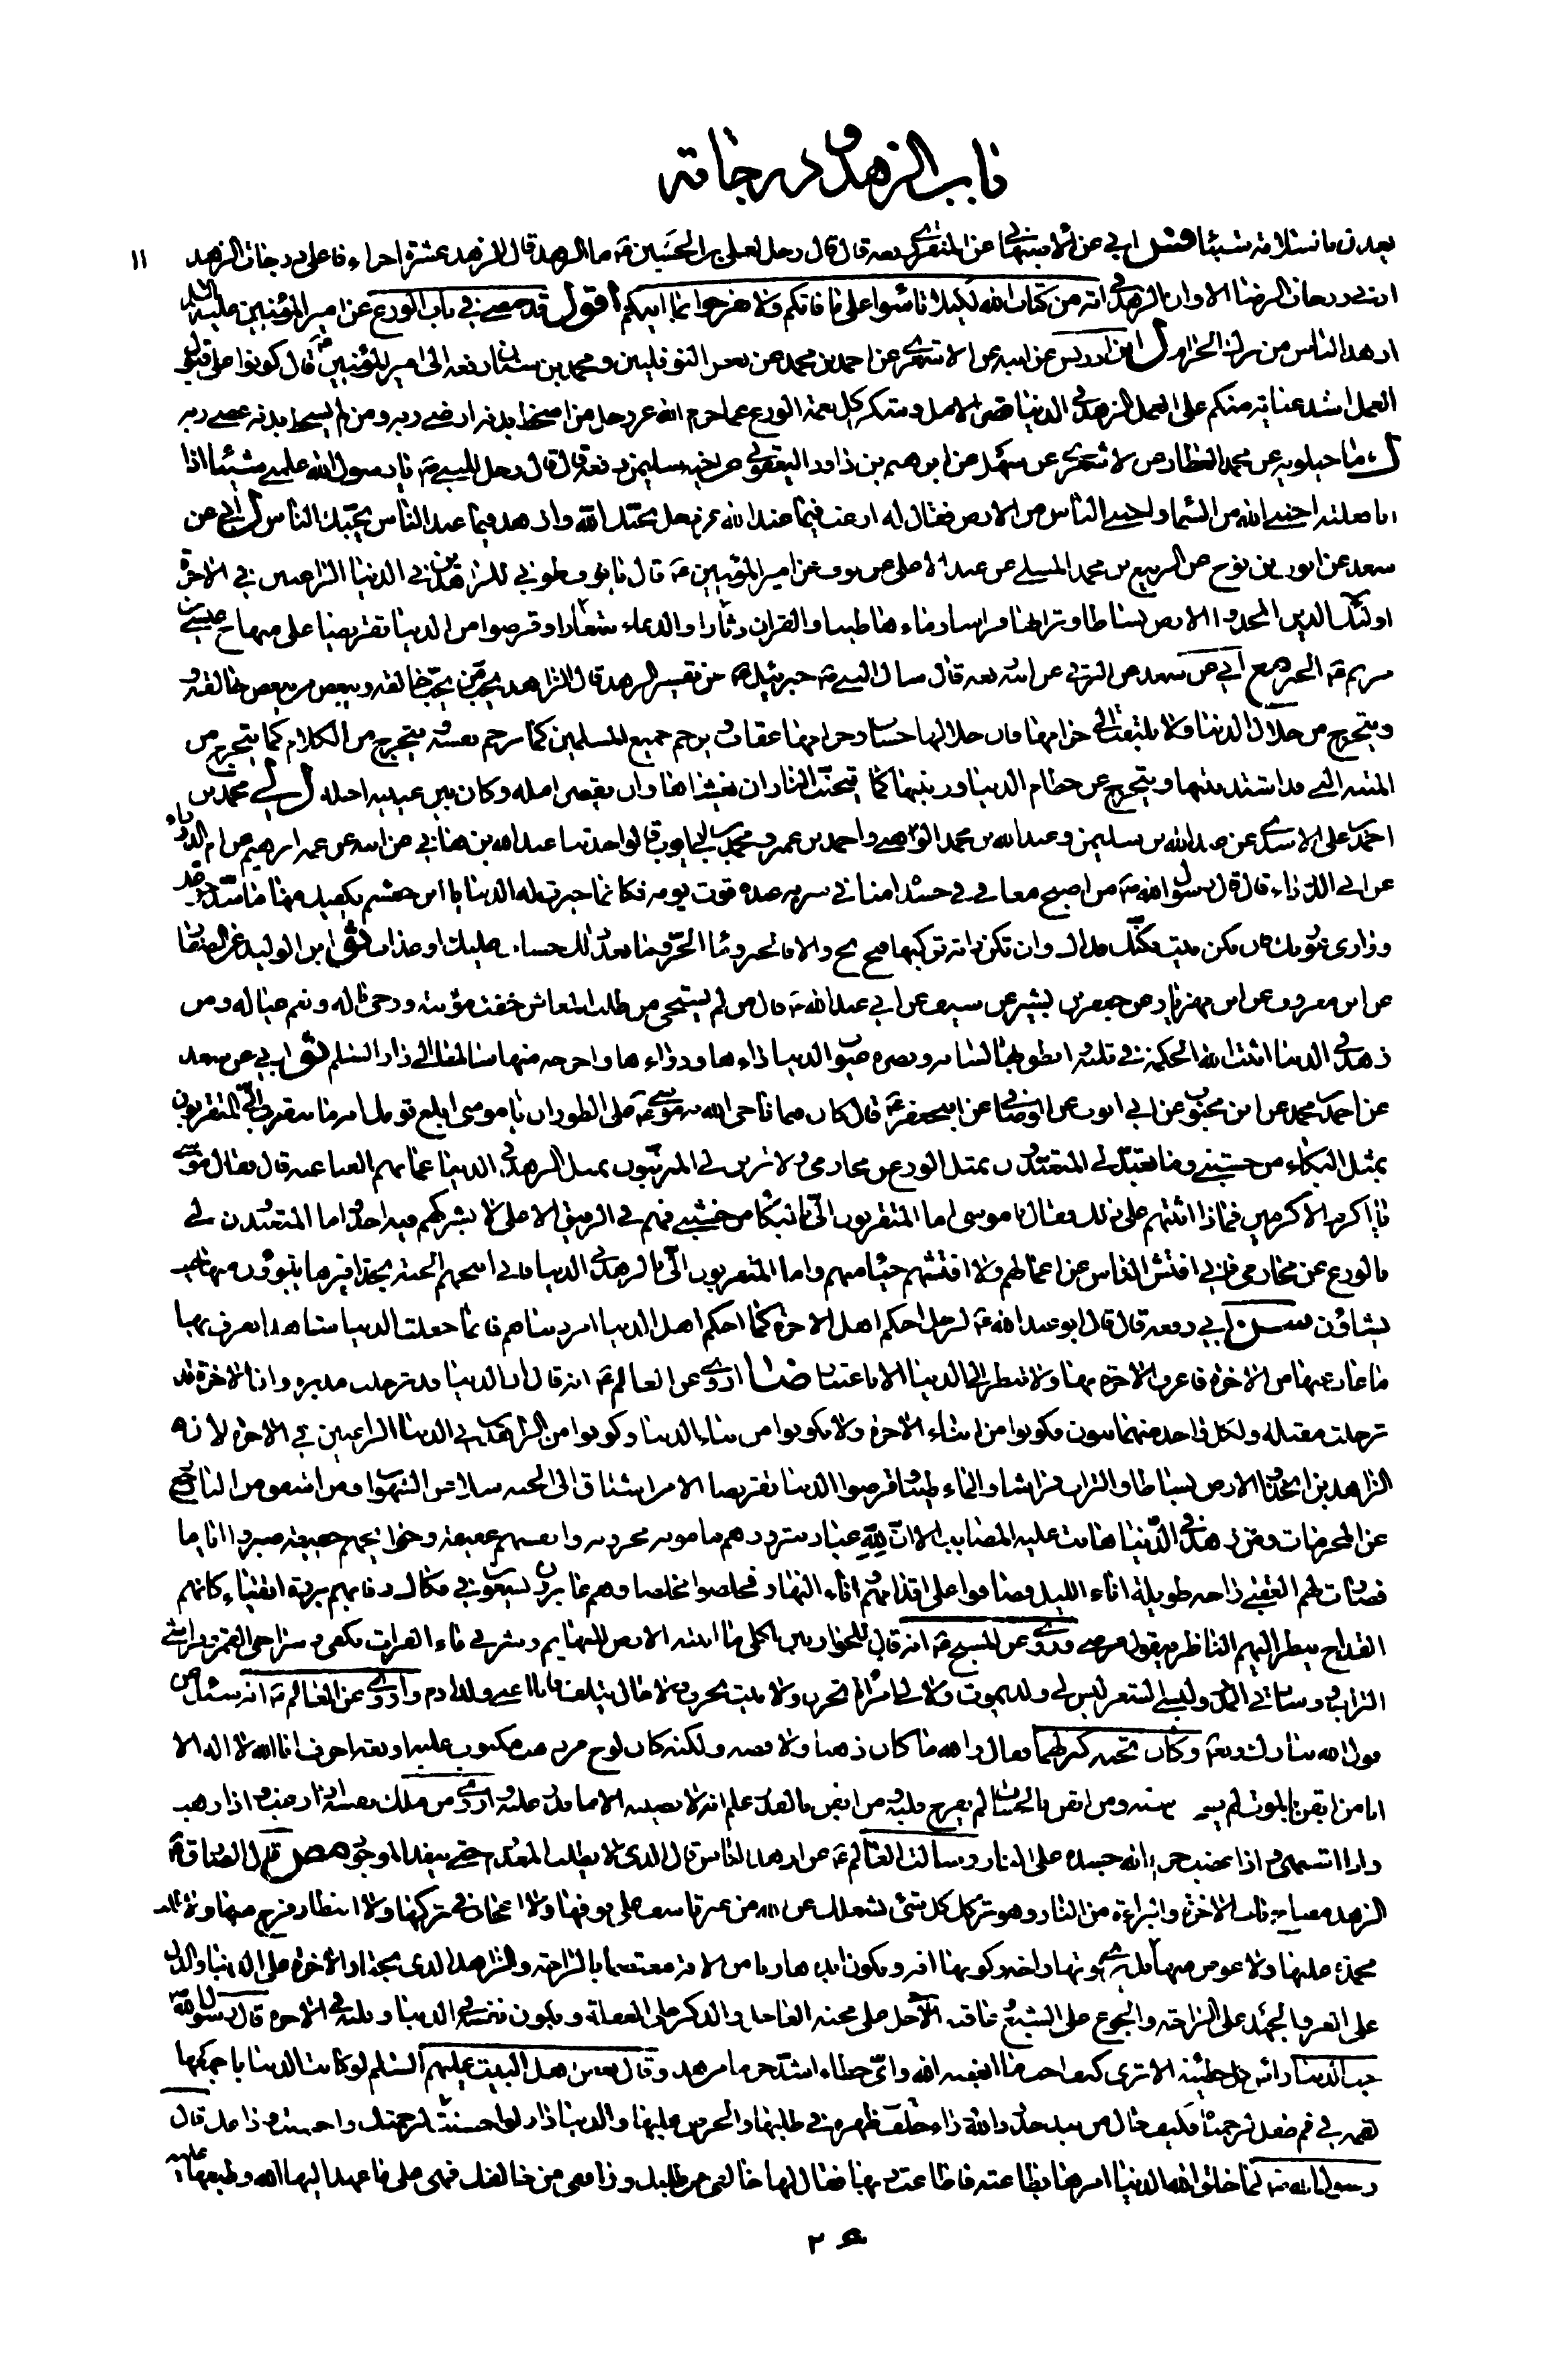 باب الزهد و درجاته
١١
بعدن ما نستلامه شيئا فتش ابي عن الاصبهاني عن المنقري رفعه قال قال رجل لعلي بن الحسين ع ما الزهد قال الزهد عشرة اجزاء فاعلى درجات الزهد
ادنى درجات الرضا الا وان الزهد في اية من كتاب الله لكيلا تاسوا على ما فاتكم ولا تفرحوا بما اتيكم اقول قد مضى في باب الورع عن امير المؤمنين عليه السلام
ازهد الناس من ترك الحرام ل ابن ادريس عن ابيه عن الاشعري عن احمد بن محمد عن بعض النوفليين ومحمد بن سنان رفعه الى امير المؤمنين ع قال كونوا على قبول
العمل اشد عناية منكم على العمل الزهد في الدنيا قصر الامل وشكر كل نعمة الورع عما حرم الله عز وجل من اسخط بدنه ارضى ربه ومن لم يسخط بدنه عصى ربه
ل ماجيلويه عن محمد العطار عن الاشعري عن سهل عن ابرهيم بن داود اليعقوبي عن اخيه سليمن رفعه قال قال رجل للنبي ص يا رسول الله علمني شيئا اذا
انا فعلته احبني الله من السماء واحبني الناس من الارض فقال له ارغب فيما عند الله عز وجل يحبك الله وازهد فيما عند الناس يحبك الناس ل ابي عن
سعد عن ايوب بن نوح عن الربيع بن محمد المسلي عن عبد الاعلى عن نوف عن امير المؤمنين ع قال يا نوف طوبى للزاهدين في الدنيا الراغبين في الاخرة
اولئك الذين اتخذوا الارض بساطا وترابها فراشا وماءها طيبا والقران دثارا والدعاء شعارا وقرضوا من الدنيا تقريضا على منهاج عيسى بن
مريم ع الخبر مع ابي عن سعد عن البرقي عن ابيه رفعه قال سال النبي ص جبرئيل ع عن تفسير الزهد قال الزاهد يحب من يحب خالقه ويبغض من يبغض خالقه
ويتحرج من حلال الدنيا ولا يلتفت الى حرامها فان حلالها حساب وحرامها عقاب ويرحم جميع المسلمين كما يرحم نفسه ويتحرج من الكلام كما يتحرج من
الميتة التي قد اشتد نتنها ويتحرج عن حطام الدنيا وزينتها كما يتجنب النار ان يغشاها وان يقصر امله وكان بين عينيه اجله ل لي محمد بن
احمد بن علي الاسدي عن عبد الله بن سليمن وعبد الله بن محمد الوهبي واحمد بن عمير ومحمد بن ابي ايوب قالوا حدثنا عبد الله بن هاني عن ابيه عن عمه ابرهيم عن ام الدرداء
عن ابي الدرداء قال قال رسول الله ص من اصبح معافى في جسده امنا في سربه عنده قوت يومه فكانما حيزت له الدنيا يا ابن جعشم يكفيك منها ما سد جوعتك
ووارى عورتك فان يكن بيت يكنك فذاك وان تكن دابة تركبها فبخ بخ والا فالخبز وماء الجر وما بعد ذلك حساب عليك او عذاب ثو ابن الوليد عن الصفار
عن ابن معروف عن ابن مهزيار عن جعفر بن بشير عن سيف عن ابي عبد الله ع قال من لم يستحي من طلب المعاش خفت مؤنته ورخى باله ونعم عياله ومن
زهد في الدنيا اثبت الله الحكمة في قلبه وانطق بها لسانه وبصره عيوب الدنيا داءها ودواءها واخرجه منها سالما الى دار السلم ثو ابي عن سعد
عن احمد بن محمد عن ابن محبوب عن ابي ايوب عن الوصافي عن ابي جعفر ع قال كان فيما ناجى الله به موسى ع على الطور ان يا موسى ابلغ قومك انه ما يتقرب الي المتقربون
بمثل البكاء من خشيتي وما تعبد لي المتعبدون بمثل الورع عن محارمي ولا تزين لي المتزينون بمثل الزهد في الدنيا عما بهم الغنا عنه قال فقال موسى
يا اكرم الاكرمين فماذا اثبتهم على ذلك فقال يا موسى اما المتقربون الي بالبكاء من خشيتي فهم في الرفيق الاعلى لا يشركهم فيه احد واما المتعبدون لي
بالورع عن محارمي فاني افتش الناس عن اعمالهم ولا افتشهم حياء منهم واما المتقربون الي بالزهد في الدنيا فاني ابيحهم الجنة بحذافيرها يتبوؤن منها حيث
يشاؤن سن ابي رفعه قال قال ابو عبد الله ع لرجل احكم اهل الاخرة كما احكم اهل الدنيا امر دنياهم فانما جعلت الدنيا شاهدا يعرف بها
ما غاب عنها من الاخرة فاعرف الاخرة بها ولا تنظر الى الدنيا الا باعتبار ضا اروي عن العالم ع انه قال ان الدنيا قد ترحلت مدبرة وان الاخرة قد
ترحلت مقبلة ولكل واحد منهما بنون فكونوا من ابناء الاخرة ولا تكونوا من ابناء الدنيا وكونوا من الزاهدين في الدنيا الراغبين في الاخرة لانه
الزاهدين اتخذوا الارض بساطا والتراب فراشا والماء طيبا وقرضوا الدنيا تقريضا الا من اشتاق الى الجنة سلا عن الشهوات ومن اشفق من النار رجع
عن المحرمات ومن زهد في الدنيا هانت عليه المصائب الا ان لله عبادا شرورهم مامونة محزونة وانفسهم عفيفة وحوائجهم خفيفة صبروا اياما
فصارت لهم العقبى راحة طويلة اناء الليل فصافوا على اقدامهم اناء النهار فخلصوا مخلصا وهم عابرون يسعون في فكاك رقابهم بررة اتقياء كانهم
القداح ينظر اليهم الناظر فيقول مرضى وروي عن المسيح ع انه قال للحواريين اكلي ما انبتته الارض للبهائم وشربي ماء الفرات بكفي وسراجي القمر وفراشي
التراب ووسادتي المدر ولبسي الشعر ليس لي ولد يموت ولا لي امراة تحزن ولا بيت يخرب ولا مال يتلف فانا اغنى ولد ادم واروي عن العالم ع انه سئل عن
قول الله تبارك وتعالى وكان تحته كنز لهما فقال والله ما كان ذهبا ولا فضة ولكنه كان لوح من ذهب مكتوب عليه اربعة احرف انا الله لا اله الا
انا من ايقن بالموت لم يضحك سنه ومن ايقن بالحساب لم يفرح قلبه ومن ايقن بالقدر علم انه لا يصيبه الا ما قدر عليه واروي من ملك نفسه اذا رغب واذا رهب
واذا اشتهى واذا غضب حرم الله جسده على النار وسالت العالم ع عن ازهد الناس قال الذي لا يطلب المعدوم حتى ينفد الموجود مص قال الصادق ع
الزهد مفتاح باب الاخرة والبراءة من النار وهو ترك كل شئ يشغلك عن الله من غير تاسف على فوتها ولا اعجاب في تركها ولا انتظار فرج منها ولا طلب
محمدة عليها ولا عوض منها بل ترى فوتها راحة وكونها افة ويكون ابدا هاربا من الافة معتصما بالراحة والزاهد الذي يختار الاخرة على الدنيا والذل
على العز والجهد على الراحة والجوع على الشبع وعاقبة الاجل على محبة العاجل والذكر على الغفلة ويكون نفسه في الدنيا وقلبه في الاخرة قال رسول الله ص
حب الدنيا راس كل خطيئة الا ترى كيف احب ما ابغضه الله واي خطاء اشد جرما من هذا وقال بعض اهل البيت عليهم السلم لو كانت الدنيا باجمعها
لقمة في فم طفل لرحمناه فكيف حال من نبذ حدود الله وراء ظهره في طلبها والحرص عليها والدنيا دار لو احسنت لرحمتك واحسنت وداعك قال
رسول الله ص لما خلق الله الدنيا امرها بطاعته فاطاعت ربها فقال لها خالفي من طلبك ووافقي من خالفك فهي على ما عهد اليها الله وطبعها عليه
٢